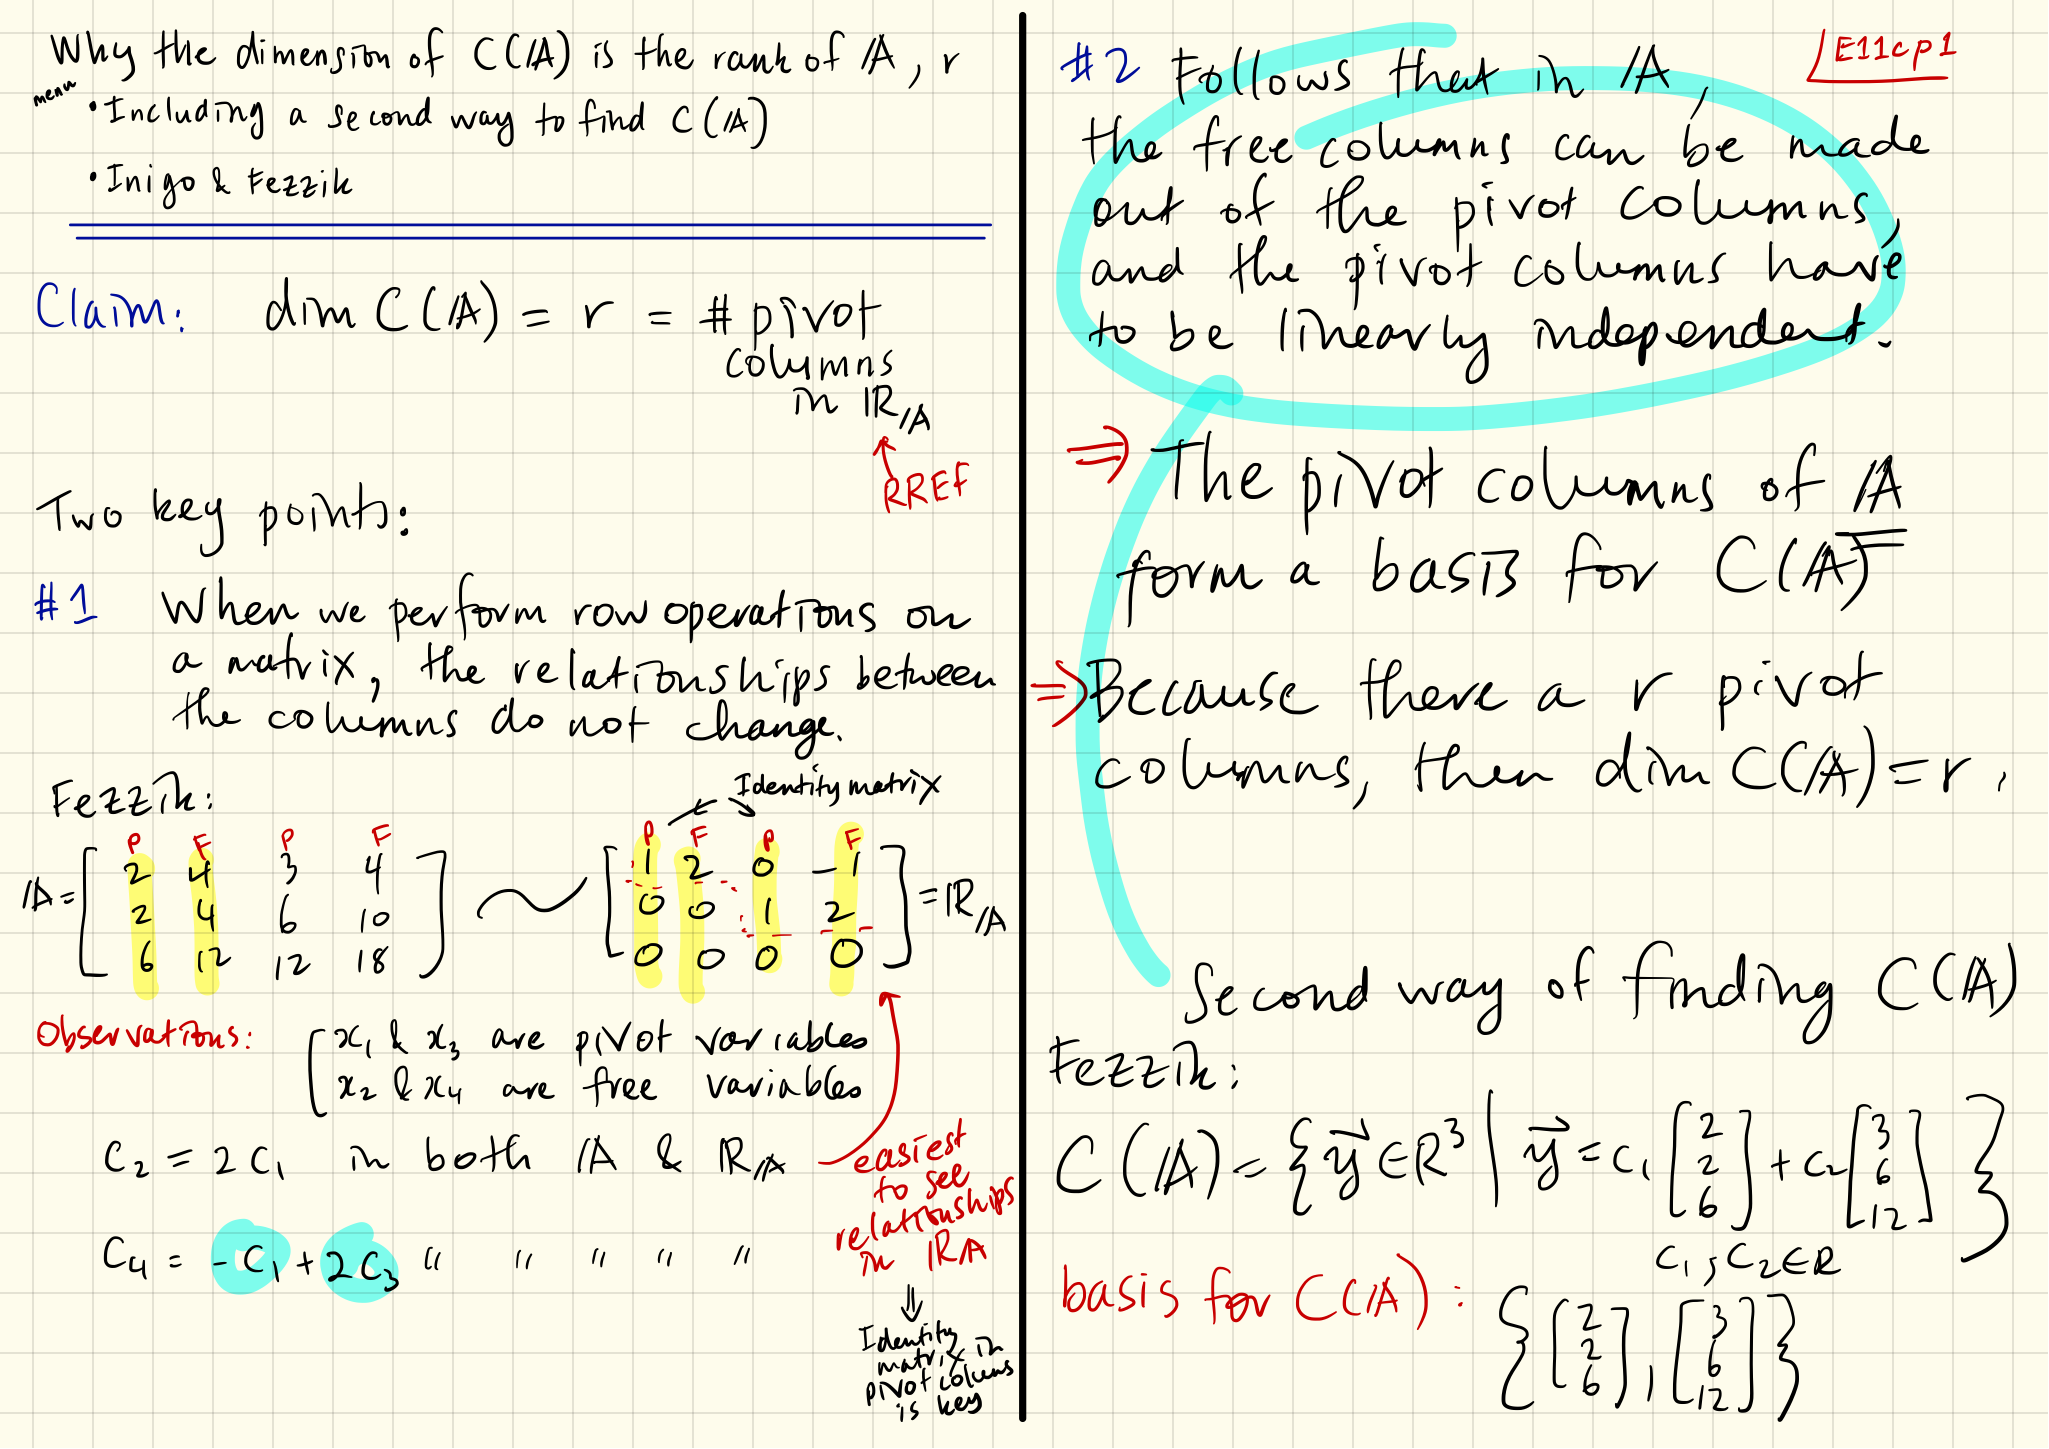 Why the dimension of C(A) is the rank of A, r
menu
• Including a second way to find C(A)
• Inigo & Fezzik
Claim: dim C(A) = r = # pivot
columns
in R_A
RREF
Two key points:
#1 When we perform row operations on
a matrix, the relationships between
the columns do not change.
Fezzik:
Identity matrix
P F P F
P F P F
A = [ 2 4 3 4 ; 2 4 6 10 ; 6 12 12 18 ] ~ [ 1 2 0 -1 ; 0 0 1 2 ; 0 0 0 0 ] = R_A
Observations: [ x₁ & x₃ are pivot variables
x₂ & x₄ are free variables
C₂ = 2C₁ in both A & R_A
C₄ = -C₁ + 2C₃ " " " " "
easiest
to see
relationships
in R_A
⇓
Identity
matrix in
pivot colums
is key
E11cp1
#2 Follows that in A,
the free columns can be made
out of the pivot columns,
and the pivot columns have
to be linearly independent.
⇒ The pivot columns of A
form a basis for C(A)
⇒ Because there a r pivot
columns, then dim C(A) = r.
Second way of finding C(A)
Fezzik:
C(A) = { y⃗ ∈ R³ | y⃗ = c₁ [ 2 ; 2 ; 6 ] + c₂ [ 3 ; 6 ; 12 ] }
c₁, c₂ ∈ R
basis for C(A): { [ 2 ; 2 ; 6 ], [ 3 ; 6 ; 12 ] }